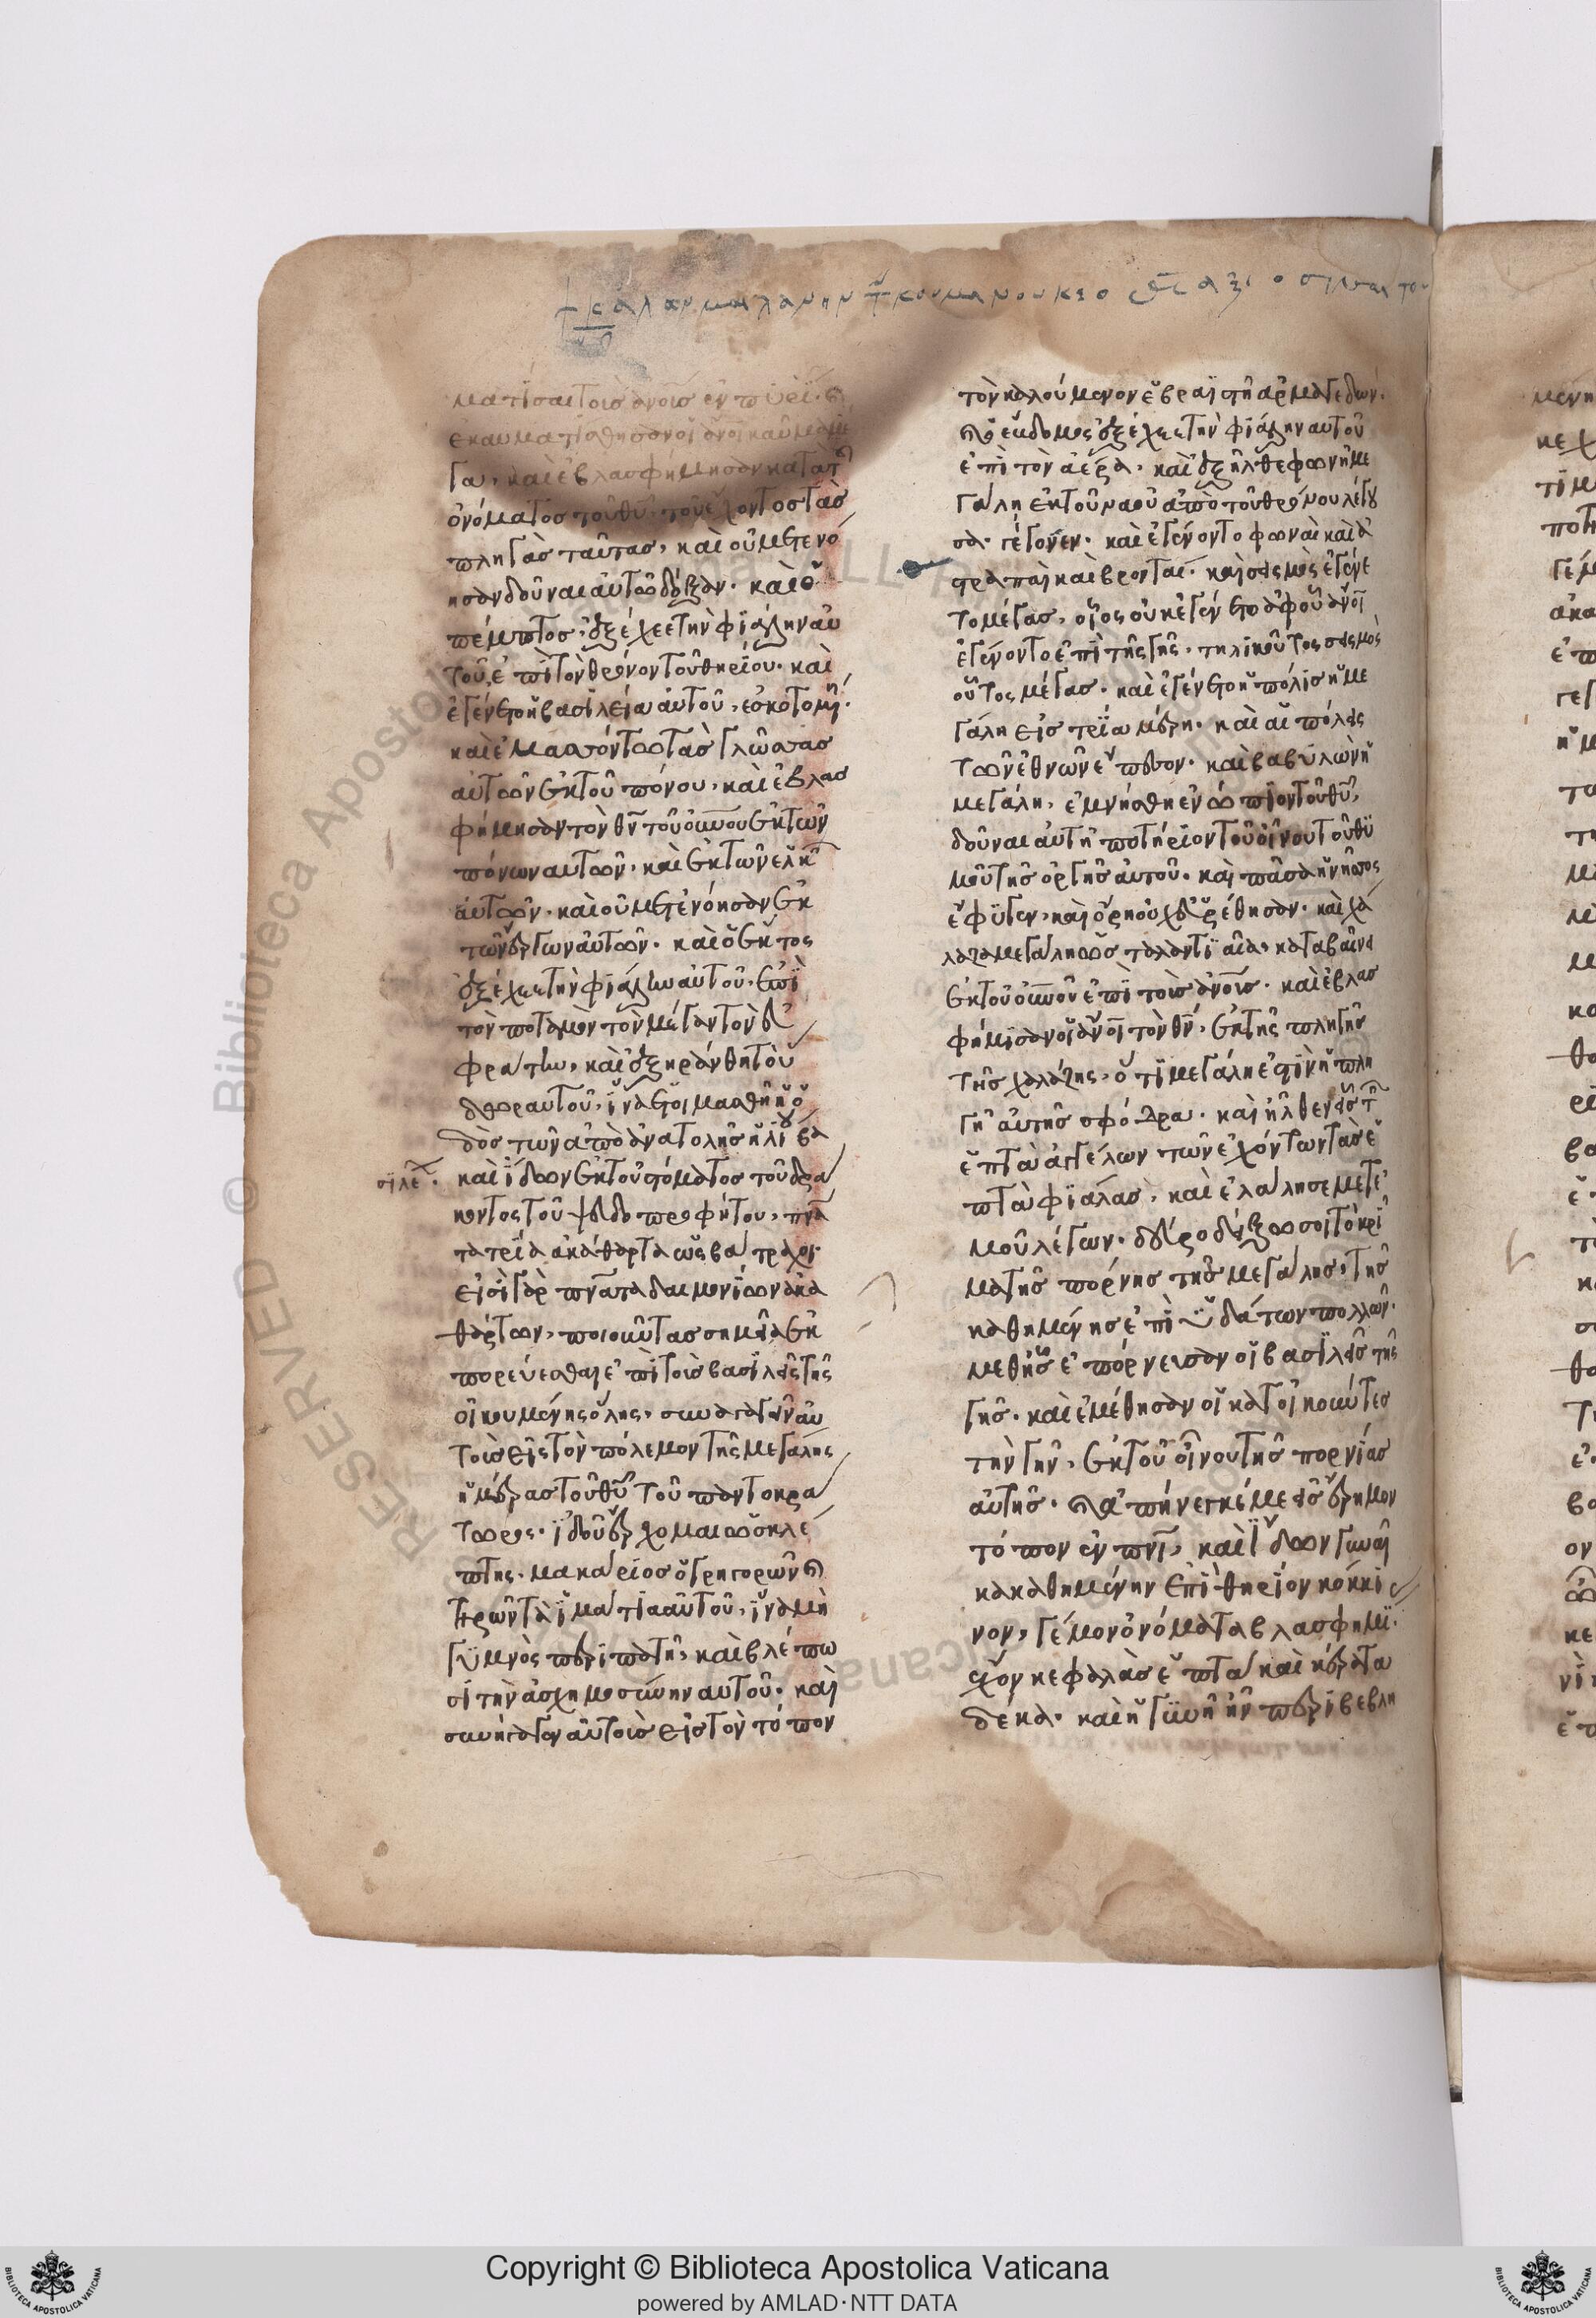 ματίσαι τοὺς ἀνους ἐν πυρί· καὶ
ἐκαυματίσθησαν οἱ ἀνοι καῦμα μέ
γα, καὶ ἐβλασφήμησαν κατὰ τοῦ
ὀνόματος τοῦ θυ τοῦ ἔχοντος τὰς
πληγὰς ταύτας, καὶ οὐ μετενό
ησαν δοῦναι αὐτῶ δόξαν. καὶ ὁ
πέμπτος, ἐξέχεε τὴν φιάλην αὐ
τοῦ, ἐπὶ τὸν θρόνον τοῦ θηρίου. καὶ
ἐγένετο ἡ βασιλεία αὐτοῦ, ἐσκοτομέ·
καὶ ἐμασσόντω τὰς γλώσσας
αὐτῶν ἐκ τοῦ πόνου, καὶ ἐβλασ
φήμησαν τὸν θν τοῦ οὐνου ἐκ τῶν
πόνων αὐτῶν, καὶ ἐκ τῶν ἑλκῶν
αὐτῶν. καὶ οὐ μετενόησαν ἐκ
τῶν ἔργων αὐτῶν. καὶ ὁ ἕκτος
ἐξέχεε τὴν φιάλην αὐτοῦ, ἐπὶ
τὸν ποταμὸν τὸν μέγαν τὸν εὐ
φράτην, καὶ ἐξηράνθη τὸ ὕ
δωρ αὐτοῦ, ἵνα ἑτοιμασθῆ ἡ ὁ
δὸς τῶν ἀπὸ ἀνατολῆς ἡλίου βα
σιλέων. καὶ ἴδων ἐκ τοῦ στόματος τοῦ δρά
κοντος τοῦ ψευδοπροφήτου, πνα
τα τρία ἀκάθαρτα ὡς βάτραχοι·
εἰσὶ γὰρ πνατα δαιμονίων ἀκα
θάρτων, ποιοῦντα σημεῖα ἐκ
πορεύεσθαι ἐπὶ τοὺς βασιλεῖς τῆς
οἰκουμένης ὅλης, συναγαγεῖν αὐ
τοὺς εἰς τὸν πόλεμον τῆς μεγάλης
ἡμέρας τοῦ θυ τοῦ παντοκρά
τωρος. ἰδοὺ ἔρχομαι ὡς κλέ
πτης. μακάριος ὁ γρηγορῶν καὶ
τηρῶν τὰ ἱμάτια αὐτοῦ, ἵνα μὴ
γυμνὸς περιπατῆ, καὶ βλέπω
σι τὴν ἀσχημοσύνην αὐτοῦ. καὶ
συνήγαγεν αὐτοὺς εἰς τὸν τόπον
τὸν καλούμενον ἑβραϊστὶ ἁρμαγεδών.
καὶ ὁ ἕβδομος ἐξέχεε τὴν φιάλην αὐτοῦ
ἐπὶ τὸν ἀέρα, καὶ ἐξῆλθε φωνὴ με
γάλη ἐκ τοῦ ναοῦ ἀπὸ τοῦ θρόνου λέγου
σα· γέγονεν. καὶ ἐγένοντο φωναὶ καὶ ἀ
στραπαὶ καὶ βρονταί. καὶ σεισμὸς ἐγένε
το μέγας, οἷος οὐκ ἐγένετο ἀφ' οὗ ἀνοι
ἐγένοντο ἐπὶ τῆς γῆς, τηλικοῦτος σεισμὸς
οὕτος μέγας. καὶ ἐγένετο ἡ πόλις ἡ με
γάλη εἰς τρία μέρη. καὶ αἱ πόλεις
τῶν ἐθνῶν ἔπεσον. καὶ βαβυλὼν ἡ
μεγάλη, ἐμνήσθη ἐνώπιον τοῦ θυ,
δοῦναι αὐτῆ ποτήριον τοῦ οἴνου τοῦ θυ
μοῦ τῆς ὀργῆς αὐτοῦ. καὶ πᾶσα νῆσος
ἔφυγεν, καὶ ὄρη οὐχ εὑρέθησαν. καὶ χά
λαζα μεγάλη ὡς ταλαντιαία, καταβαίνει
ἐκ τοῦ οὐνοῦ ἐπὶ τοὺς ἀνους. καὶ ἐβλασ
φήμισαν οἱ ἀνοι τὸν θν, ἐκ τῆς πληγῆς
τῆς χαλάζης, ὅτι μεγάλη ἐστὶν ἡ πλη
γὴ αὐτῆς σφόδρα. καὶ ἦλθεν εἷς τῶν
ἑπτὰ ἀγγέλων τῶν ἐχόντων τὰς ἑ
πτὰ φιάλας, καὶ ἐλάλησε μετ' ἐ
μοῦ λέγων. δεῦρο δείξω σοι τὸ κρῖ
μα τῆς πόρνης τῆς μεγάλης, τῆς
καθημένης ἐπὶ ὑδάτων πολλῶν.
μεθ' ἧς ἐπόρνευσαν οἱ βασιλεῖς τῆς
γῆς. καὶ ἐμέθησαν οἱ κατοικοῦντες
τὴν γῆν, ἐκ τοῦ οἴνου τῆς πορνίας
αὐτῆς. καὶ ἀπήνεγκέ με εἰς ἔρημον
τόπον ἐν πνι, καὶ ἴδων γυναῖ
κα καθημένην ἐπὶ θηρίον κόκκι
νον, γέμον ὀνόματα βλασφημί·
ἔχον κεφαλὰς ἑπτὰ καὶ κέρατα
δέκα. καὶ ἡ γυνὴ ἦν περιβεβλη